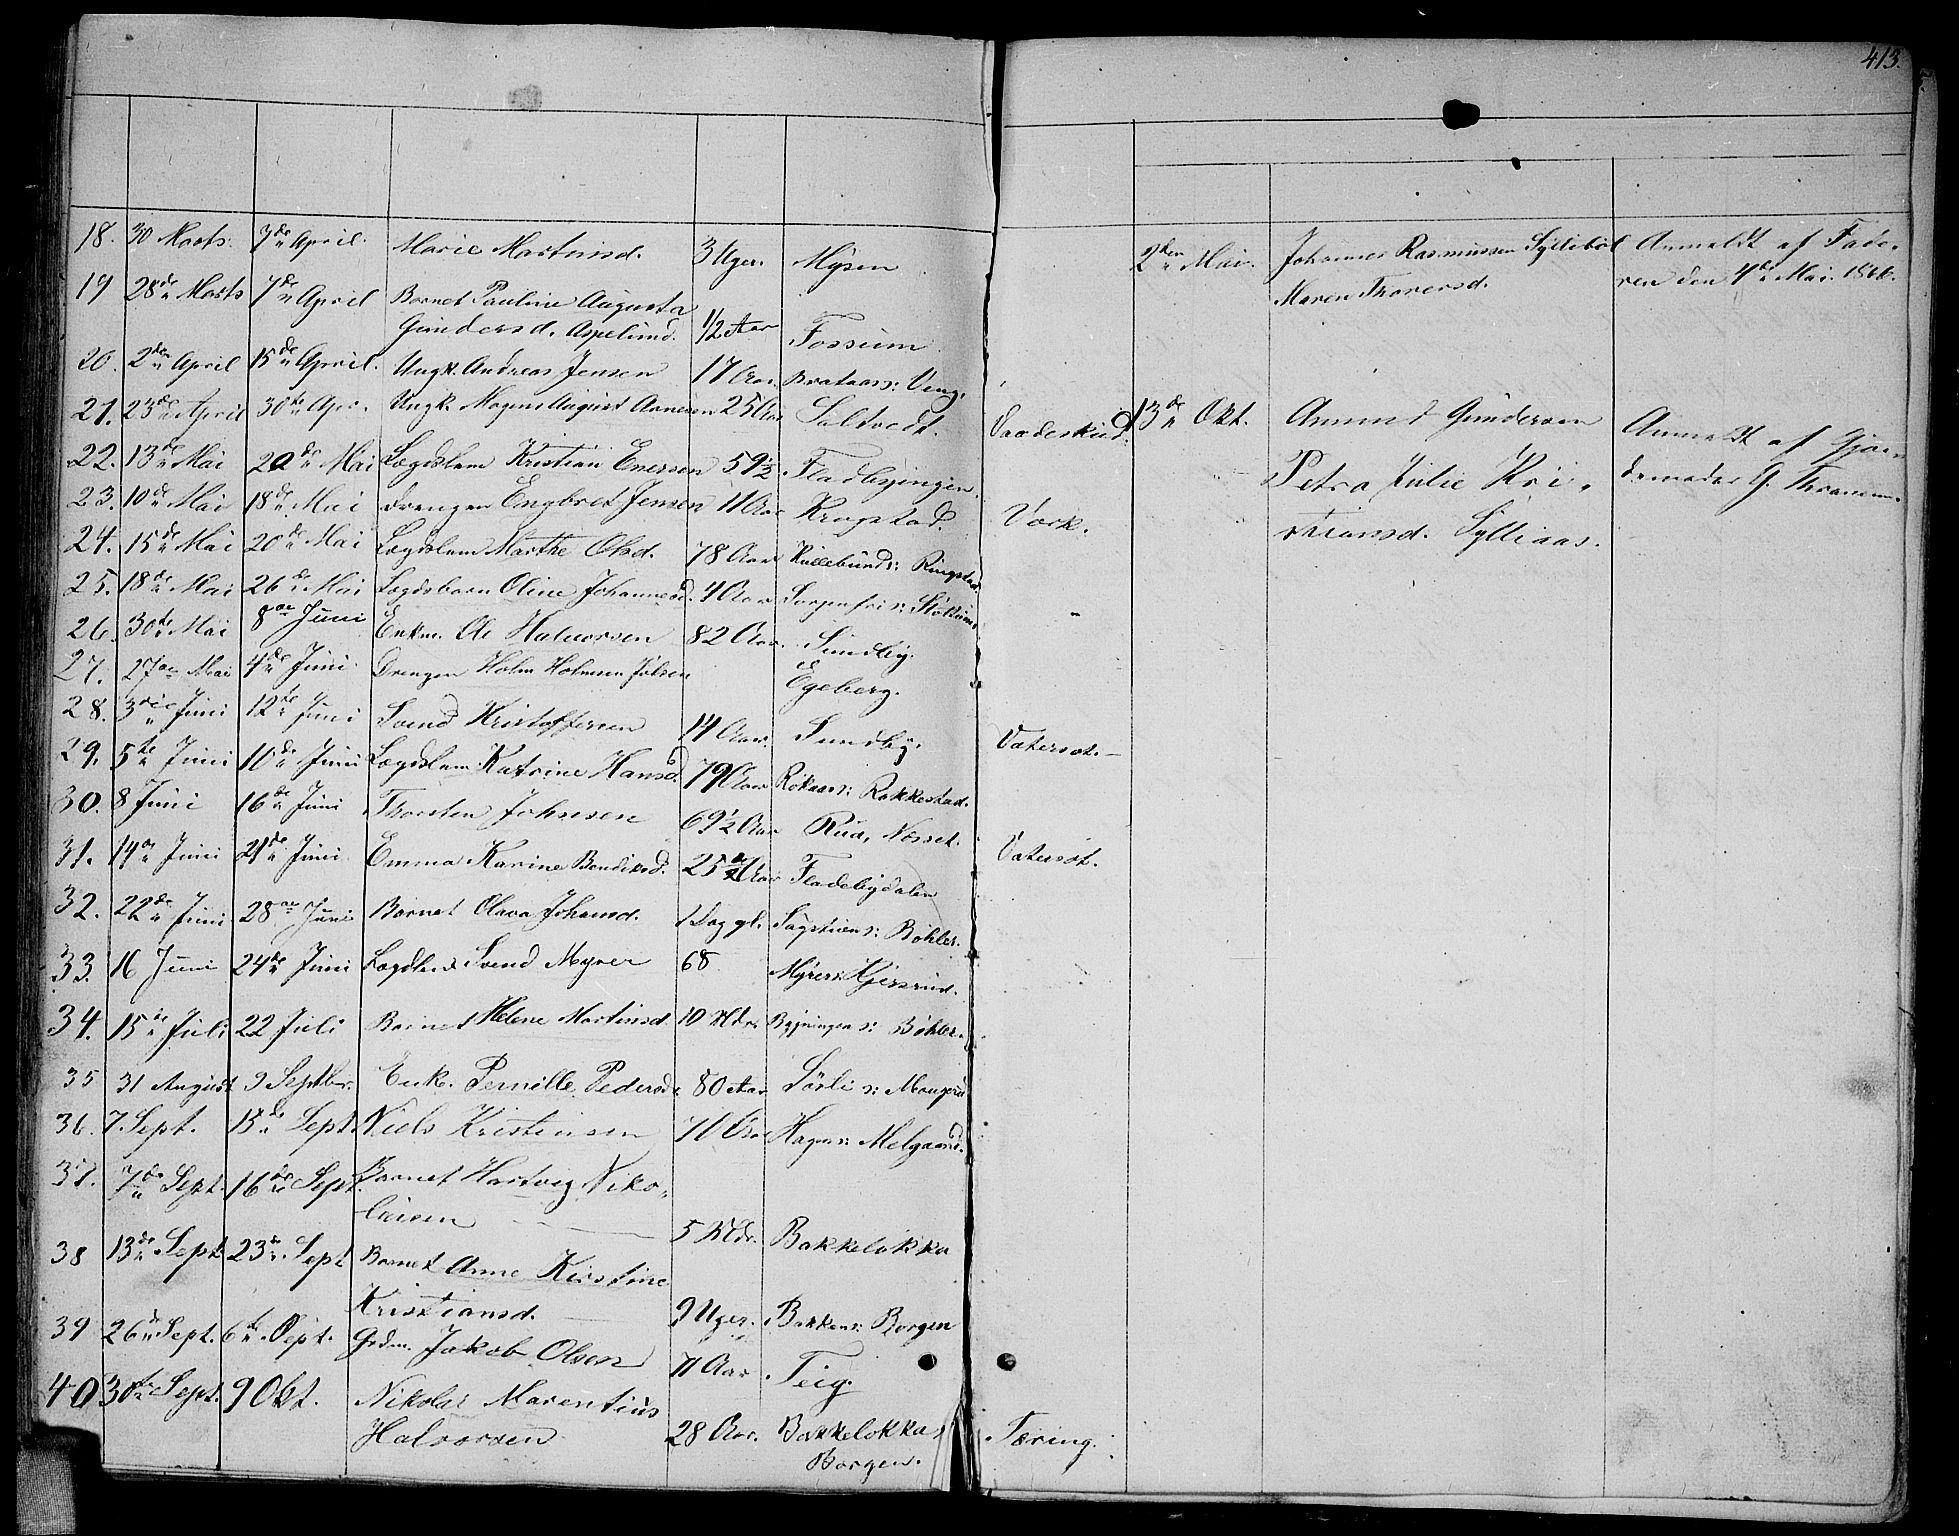 413.
18. 30 Marts. 7de April. Marie Martinsd. 3 Uger. Mysen
19 28de Marts 7de April Barnet Pauline Augusta
Gundersd. Aspelund. 1/2 Aar Fossum
20. 2den April 15de April. Ungk. Andreas Jensen 17 Aar.
21. 23de April 30te Apr. Ungk. Magnus August Arnesen 25 Aar Saltvedt. Vaadeskud.
22. 13de Mai 20de Mai Lægdslem Kristian Enersen 59 1/2. Fladbyingen.
23. 10de Mai 18de Mai Drengen Engbret Jensen 11 Aar Krogstad. Værk.
24. 15de Mai 20de Mai Lægdslem Marthe Olsd. 78 Aar Kullebunds: Ringstad
25. 18de Mai 26de Mai Lægdsbarn Oline Johannesd. 4 Aar Sorgenfri s:
26. 30te Mai 8de Juni Enkm. Ole Halvorsen 82 Aar. Sundby.
27. 27de Mai 4de Juni. Drengen Holm Holmsen Jølsen Egeberg.
28. 3die Juni 12te Juni Svend Kristoffersen 14 Aar. Sundby. Vatersot.
29. 5te Juni 10de Juni Lægdslem Katrine Hansd. 79 Aar Rokaas: Rakkestad.
30. 8 Juni 16de Juni Thorsten Johnsen 69 1/2 Aar Rud, Næsset.
31. 14de Juni 21de Juni. Emma Karine Bendiksd. 25 Aar Fladebydalen Vatersot.
32. 22de Juni 28de Juni Barnet Olava Johansd. 1 Dag gl. Sagstuens: Bøhler.
33. 16 Juni 24de Juni Svend Myrer 68. Myrers: Kjersrud.
34. 15de Juli 22 Juli Barnet Helene Martinsd. 10 Mdr. Bygningens: Bøhler.
35 31 August 9 Septbr. Enke. Pernille Pedersd. 80 Aar Sørli s:
36. 7. Sept. 15de Sept. Niels Kristensen 70 Aar Hagens: Melgaard.
37. 7de Sept. 16de Sept. Barnet Hartvig Niko-
laisen 5 Mdr. Bakkeløkka
38 13de Sept. 23de Sept Barnet Anne Kirstine
Kristiansd. 9 Uger. Bakkens: Borgen
39 26de Sept. 6te Sept. Grdm. Jakob Olsen 71 Aar Teig.
40 30te Sept. 9 Okt. Nikolai Marentius
Halvorsen 28 Aar. Bakkeløkkas Tæring.
Borgen.
2den Mai. Johannes Rasmussen Syllibøl Anmeldt af Fade-
Maren Thoresd. ren den 4de Mai 1866.
13de Okt. Amund Gundersen Anmeldt af Gjor-
Petra Julie Kri- demoder G. Thranem
stiansd. Sylliaas.